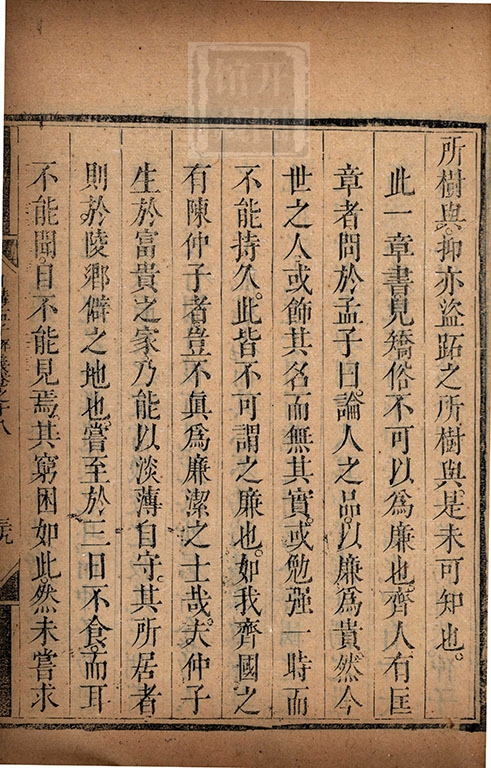 所樹與抑亦盜跖之所樹與是未可知也。
此一章書見矯俗不可以爲廉也齊人有匡
章者問於孟子曰論人之品以廉爲貴然今
世之人或飾其名而無其實或勉強一時而
不能持久此皆不可謂之廉也如我齊國之
有陳仲子者豈不眞爲廉潔之士哉夫仲子
生於富貴之家乃能以淡薄自守其所居者
則於陵鄉僻之地也嘗至於三日不食而耳
不能聞目不能見焉其窮困如此然未嘗求